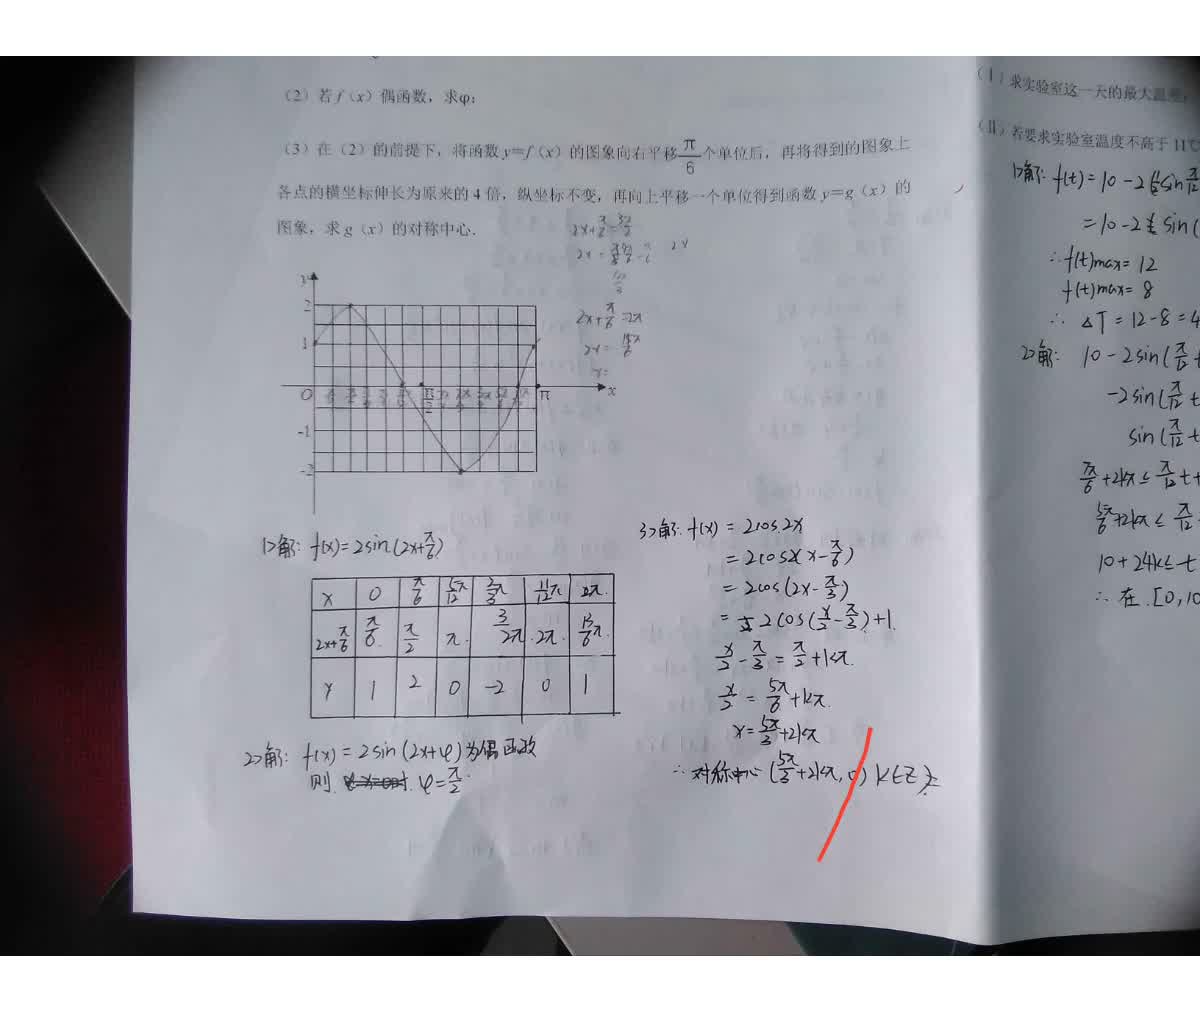 （2）若 f（x）偶函数，求φ；
（3）在（2）的前提下，将函数 y=f（x）的图象向右平移π/6个单位后，再将得到的图象上
各点的横坐标伸长为原来的 4 倍，纵坐标不变，再向上平移一个单位得到函数 y=g（x）的
图象，求 g（x）的对称中心.
2x+π/6=2π
2x=
x=
y
2
1
O
π
x
-1
-2
1>解: f(x)=2sin(2x+π/6)
x 0 π/6 5π/12 11/12π
2x+π/6 π/6 π/2 π 2π 13/6π
y 1 2 0 -2 0 1
2>解: f(x)=2sin(2x+φ)为偶函数
则 φ=π/2
3>解: f(x)=2cos2x
=2cos2(x-π/6)
=2cos(2x-π/3)
=2cos(x/2-π/3)+1
x/2-π/3=π/2+kπ
x/2=5π/6+kπ
x=5π/3+2kπ
∴对称中心(5π/3+2kπ,0) k∈Z
（Ⅰ）求实验室这一天的最大温差；
（Ⅱ）若要求实验室温度不高于 11℃
1>解: f(t)=10-2
=10-2 sin(
∴f(t)max=12
f(t)max=8
∴ΔT=12-8=4
2>解: 10-2sin(π/12 t+
-2sin(π/12 t
sin(π/12 t
+2kπ≤π/12 t+
+2kπ≤π/12
10+24k≤t
∴在[0,10